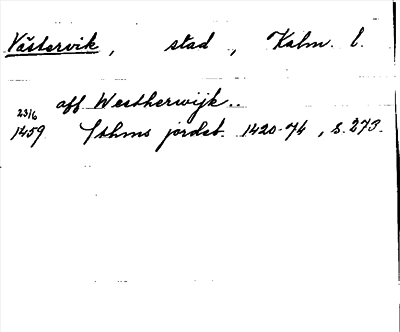 Västervik, stad, Kalm. l.
aff Westherwijk..
23/6
1459 Sthms jordeb. 1420-74, s. 273.